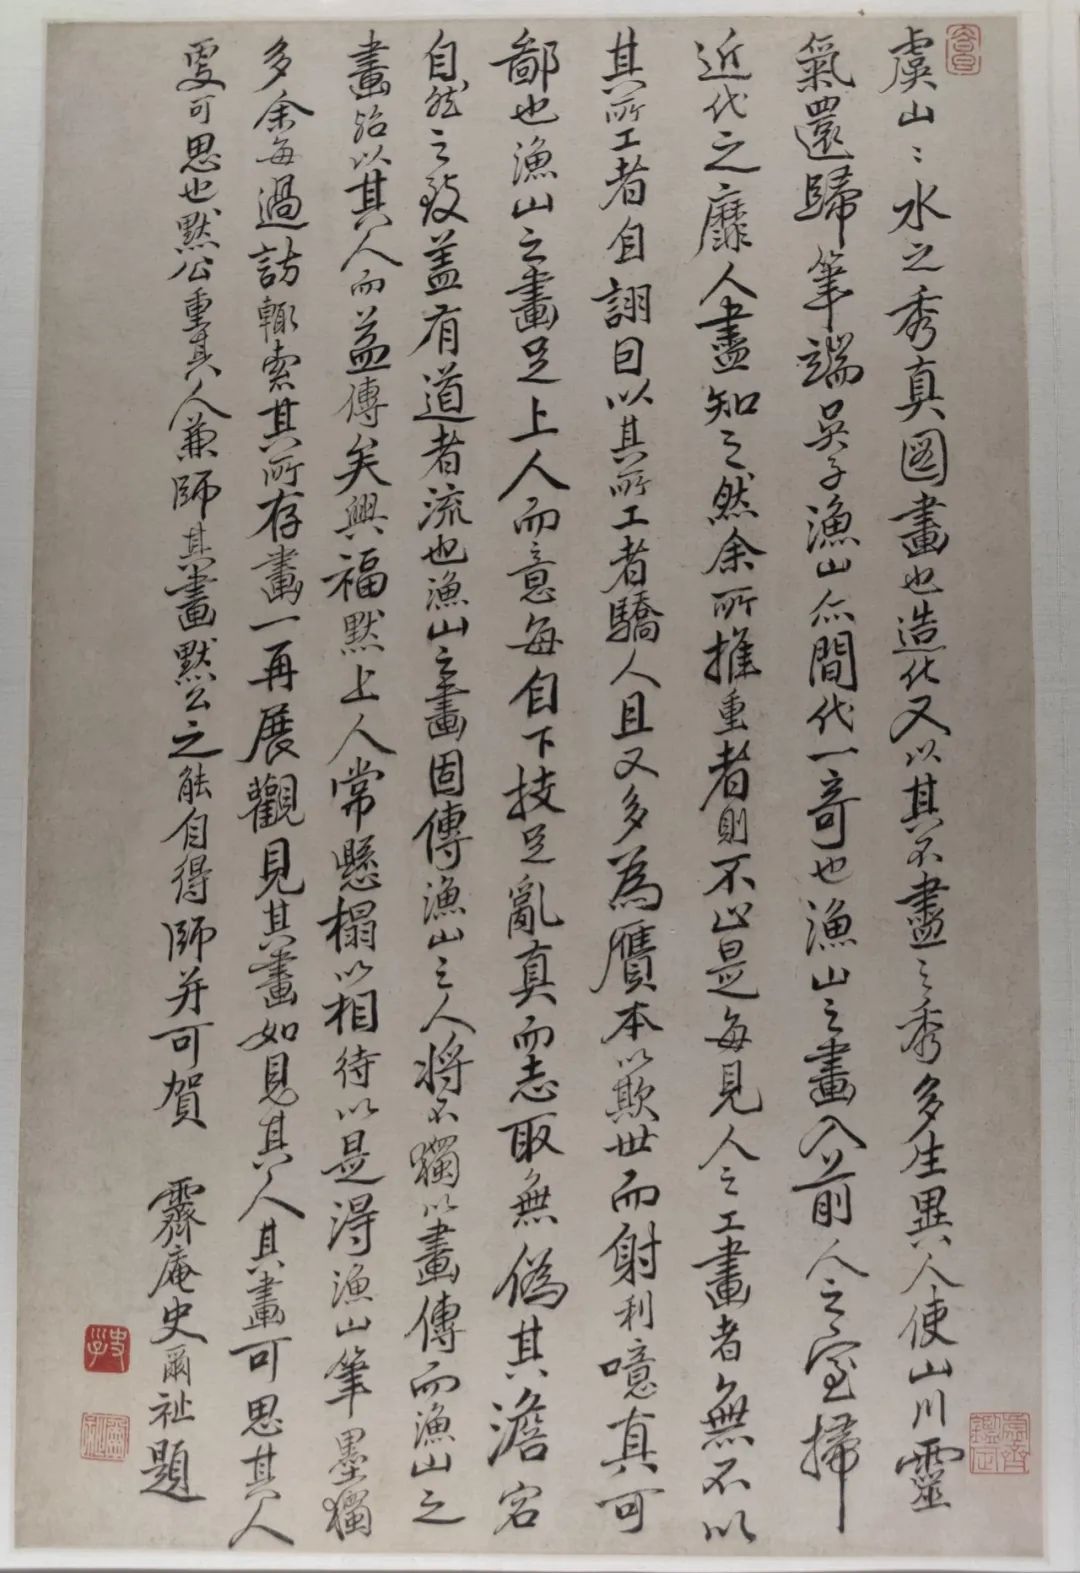 虞山〻水之秀真圖畫也造化又以其不盡之秀多生異人使山川靈
氣還歸筆端吳子漁山亦間代一奇也漁山之畫入前人之室掃
近代之靡人盡知之然余所推重者則不止是每見人之工畫者無不以
其所工者自詡曰以其所工者驕人且又多為贋本以欺世而射利噫真可
鄙也漁山之畫足上人而意每自下技足亂真而志取無偽其澹宕
自然之致蓋有道者流也漁山之畫固傳漁山之人將不獨以畫傳而漁山之
畫治以其人而益傳矣興福默上人常懸榻以相待以是得漁山筆墨獨
多余每過訪輒索其所存畫一再展觀見其畫如見其人其畫可思其人
更可思也默公重其人兼師其畫默公之能自得師并可賀 霽庵史爾祉題